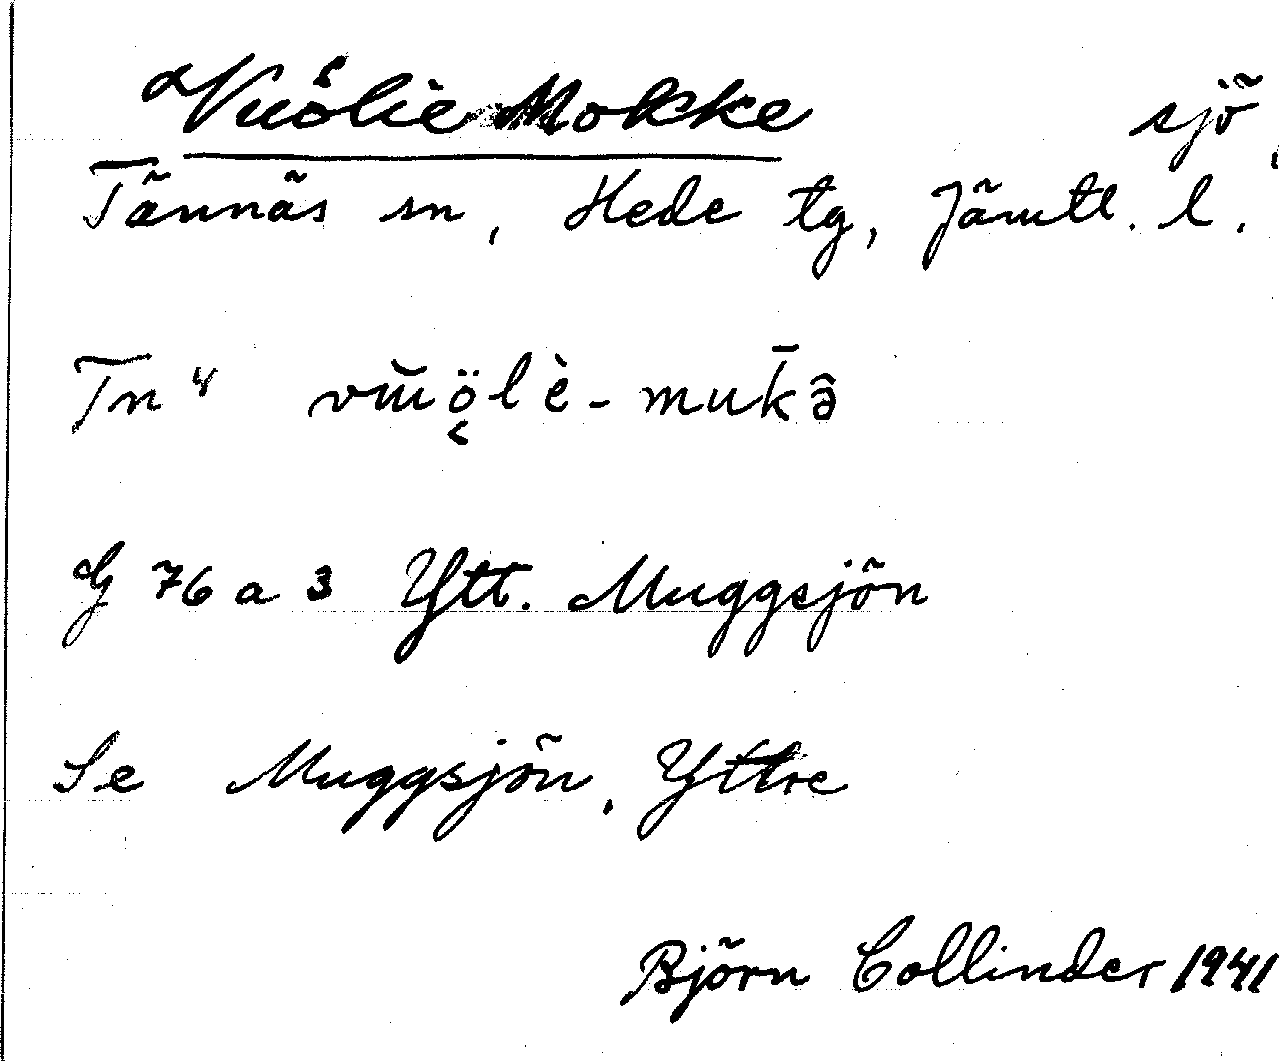 Vuölie Mokke sjö,
Tännäs sn, Hede tg, Jämtl. l.
Tn 4 vŭö̬lè-muk̄ə̑
G 76 a 3 Ytt. Muggsjön
Se Muggsjön, Yttre
Björn Collinder 1941